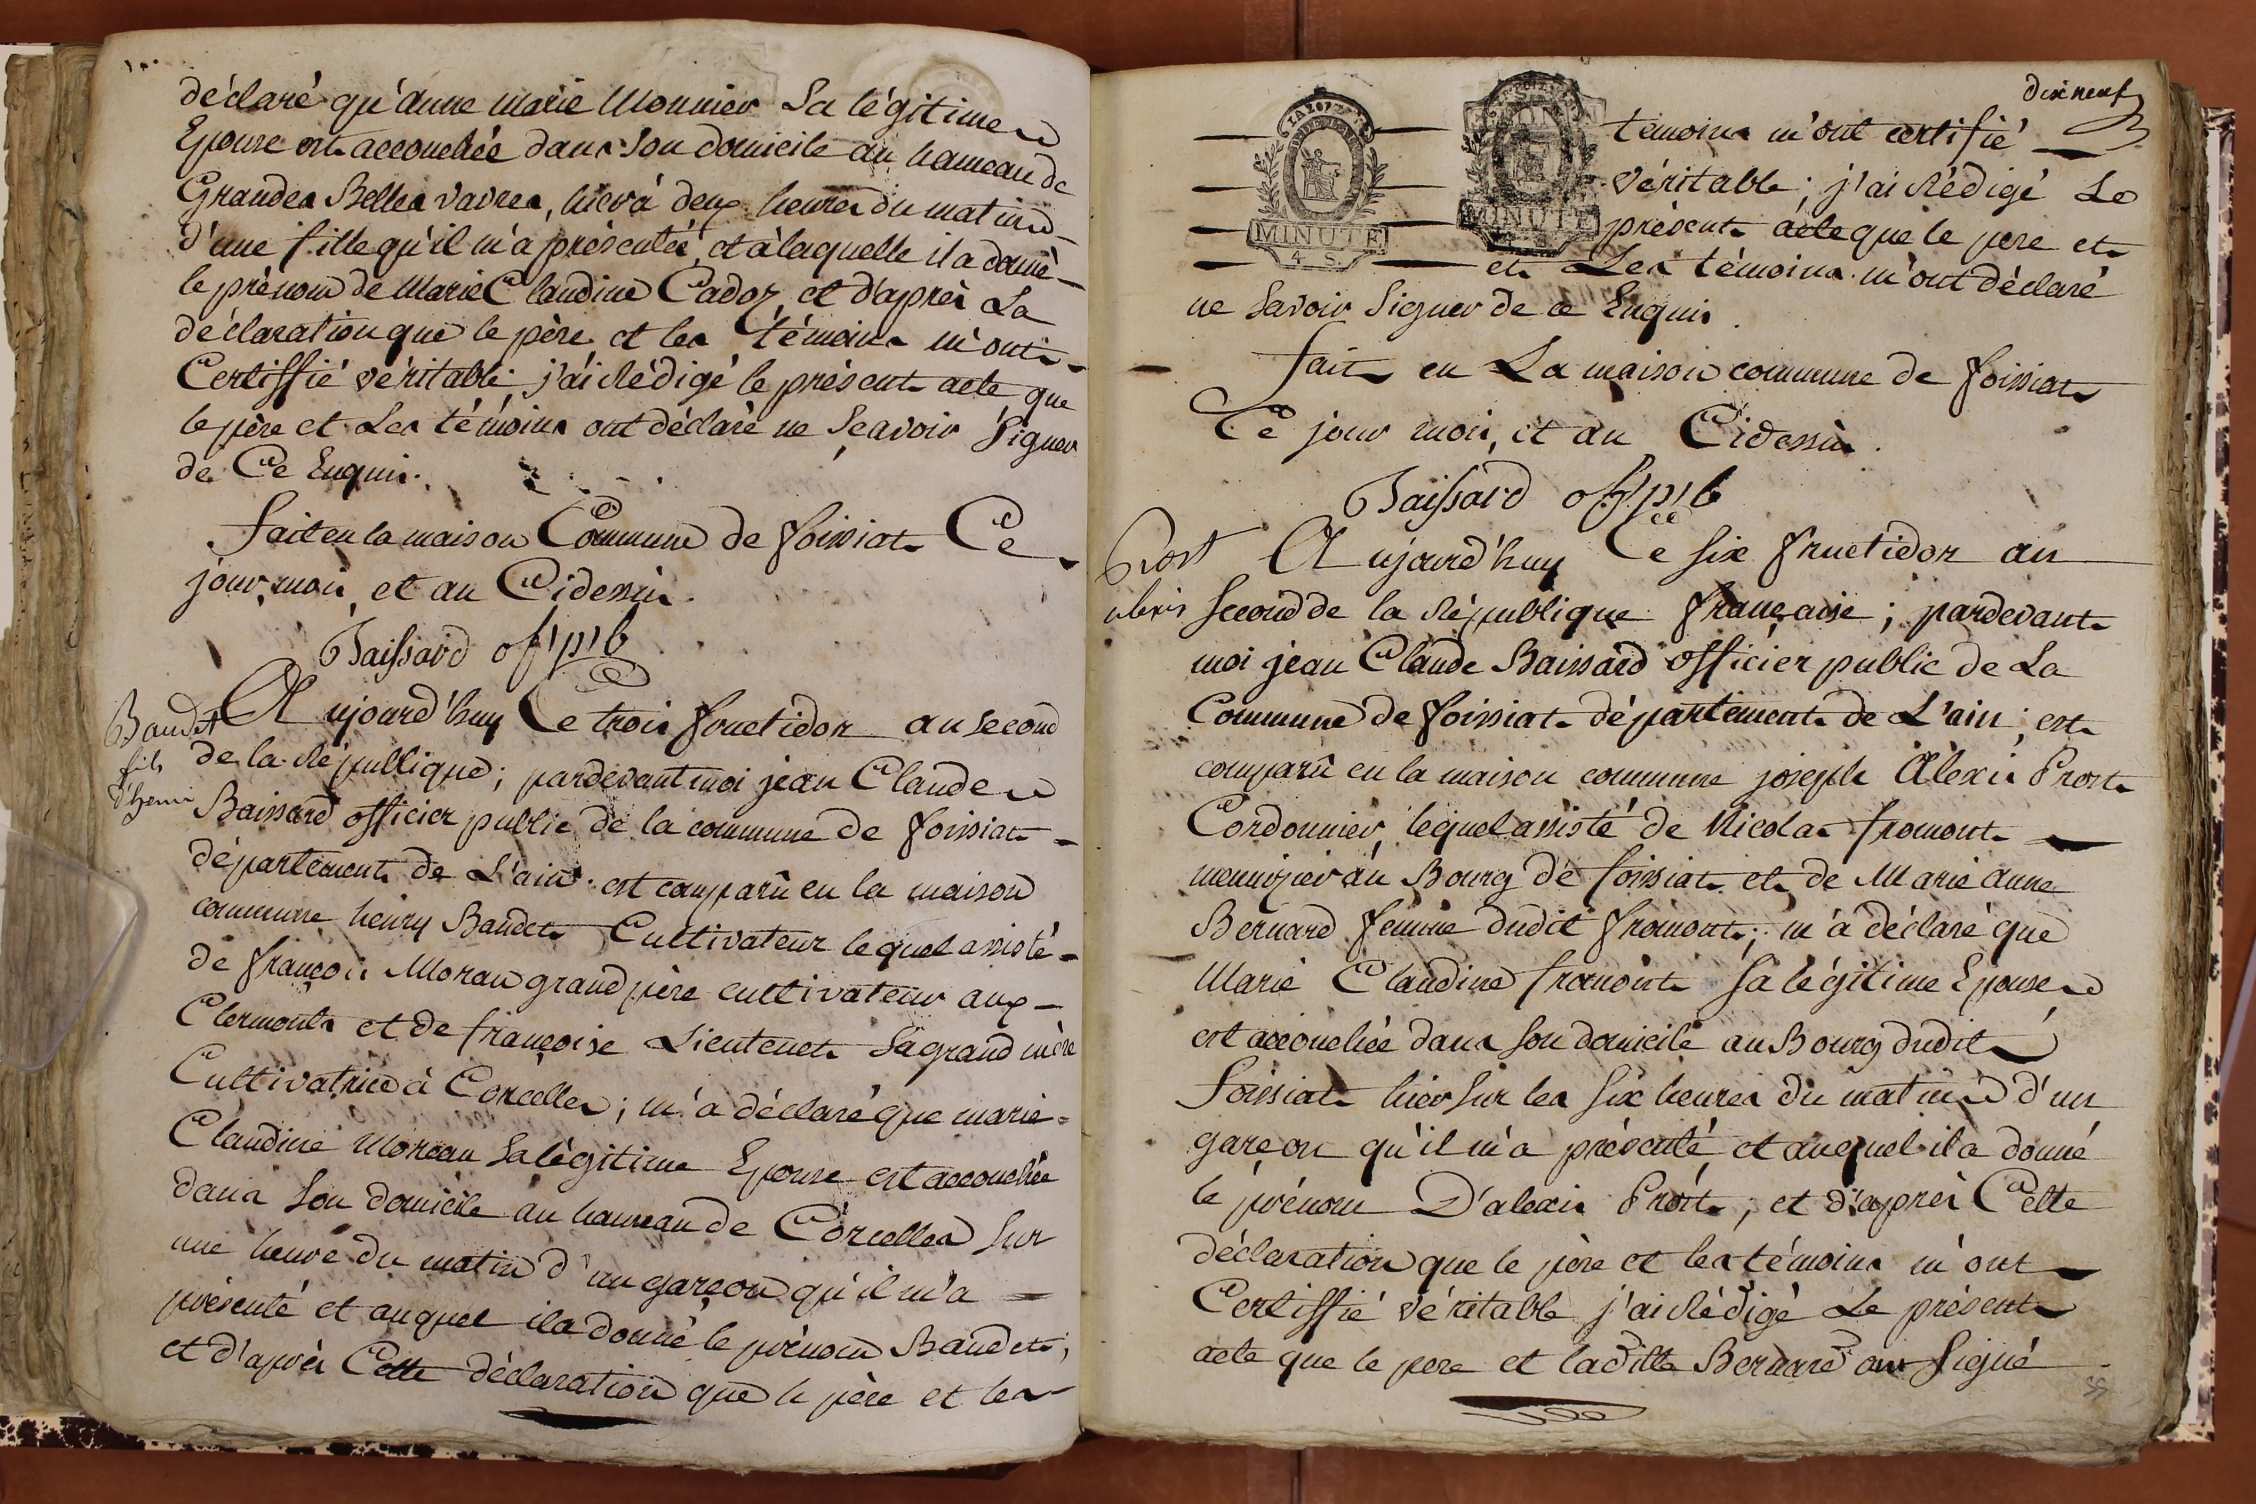 déclaré qu'anne marie Monnier Sa légitime
Epouse est accouchée dans Son domicile au hameau de
Grandes Belles vavres, hier à deux heures du matin
d'une fille qu'il m'a présentée, et à laquelle il a donné
le prénom de Marie Claudine Cadoz et d'après La
déclaration que le père et les témoins m'ont
Certiffié véritable; j'ai Rédigé le présent acte que
le père et Les témoins ont déclaré ne Sçavoir Signer
de Ce Enquis.
Fait en la maison Commune de foissiat Ce
jour, mois, et an Cidessus.
Baissard off. p. b
Baudet
fils
d'henri
Aujourd'huy Ce trois fructidor an second
de la République; pardevant moi jean Claude
Baissard officier public de la commune de foissiat
département de L'ain est comparû en la maison
commune henry Baudet Cultivateur lequel assisté
de françois Moreau grand père cultivateur aux
Clermonts et de françoise Lieutenet Sa grand mère
Cultivatrice à Corcelles; m'a déclaré que marie
Claudine Moreau Sa légitime Epouse est accouchée
dans Son domicile au hameau de Corcelles Sur
une heure du matin d'un garçon qu'il m'a
présenté et auquel il a donné le prénom Baudet;
et d'après Cette déclaration que le père et les
dix neuf
MINUTE
4. S.
MINUTE
témoins m'ont certifié
véritable; j'ai Rédigé Le
présent acte que le pere et
et Les témoins m'ont déclaré
ne Savoir Signer de ce Enquis.
fait en La maison commune de foissiat
Ce jour mois, et an Cidessus.
Baissard off. p. b
Prost
alexis
Aujourd'huy Ce six fructidor an
Second de la République française; pardevant
moi jean Claude Baissard officier public de La
Commune de foissiat département de L'ain; est
comparû en la maison commune joseph Alexis Prost
Cordonnier, lequel assisté de Nicolas fromont
menuizier au Bourg de foissiat et de Marie anne
Bernard femme dudit fromont; m'a déclaré que
Marie Claudine fromont Sa légitime Epouse
est accouchée dans Son domicile au Bourg dudit
foissiat hier Sur les Six heures du matin d'un
garçon qu'il m'a présenté et auquel il a donné
le prénom D'alexis Prost, et d'après Cette
déclaration que le père et les témoins m'ont
Certiffié véritable j'ai Rédigé Le présent
acte que le pere et laditte Bernard ont Signé